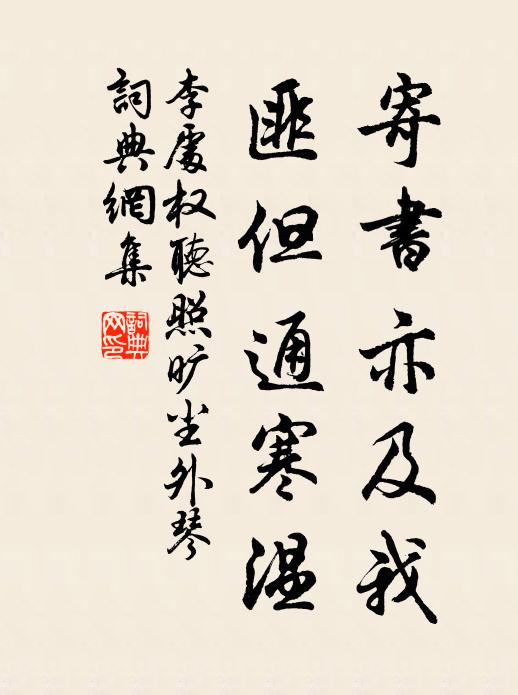 寄書亦及我
匪但通寒温
李處权聽照旷尘外琴
詞典網集
詞典網印